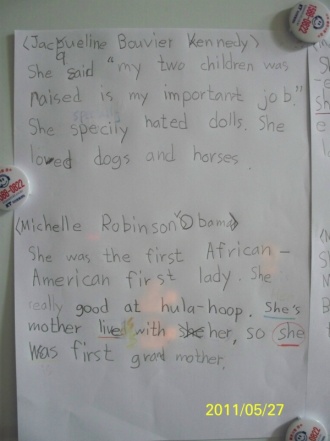 <Jacqueline Bouvier Kennedy>
She said "my two children was
raised is my important job."
She specify hated dolls. She
loved dogs and horses.
<Michelle Robinson Obama>
She was the first African-
American first lady. She
really good at hula-hoop. She's
mother lived with her, so she
was first grand mother.
2011/05/27